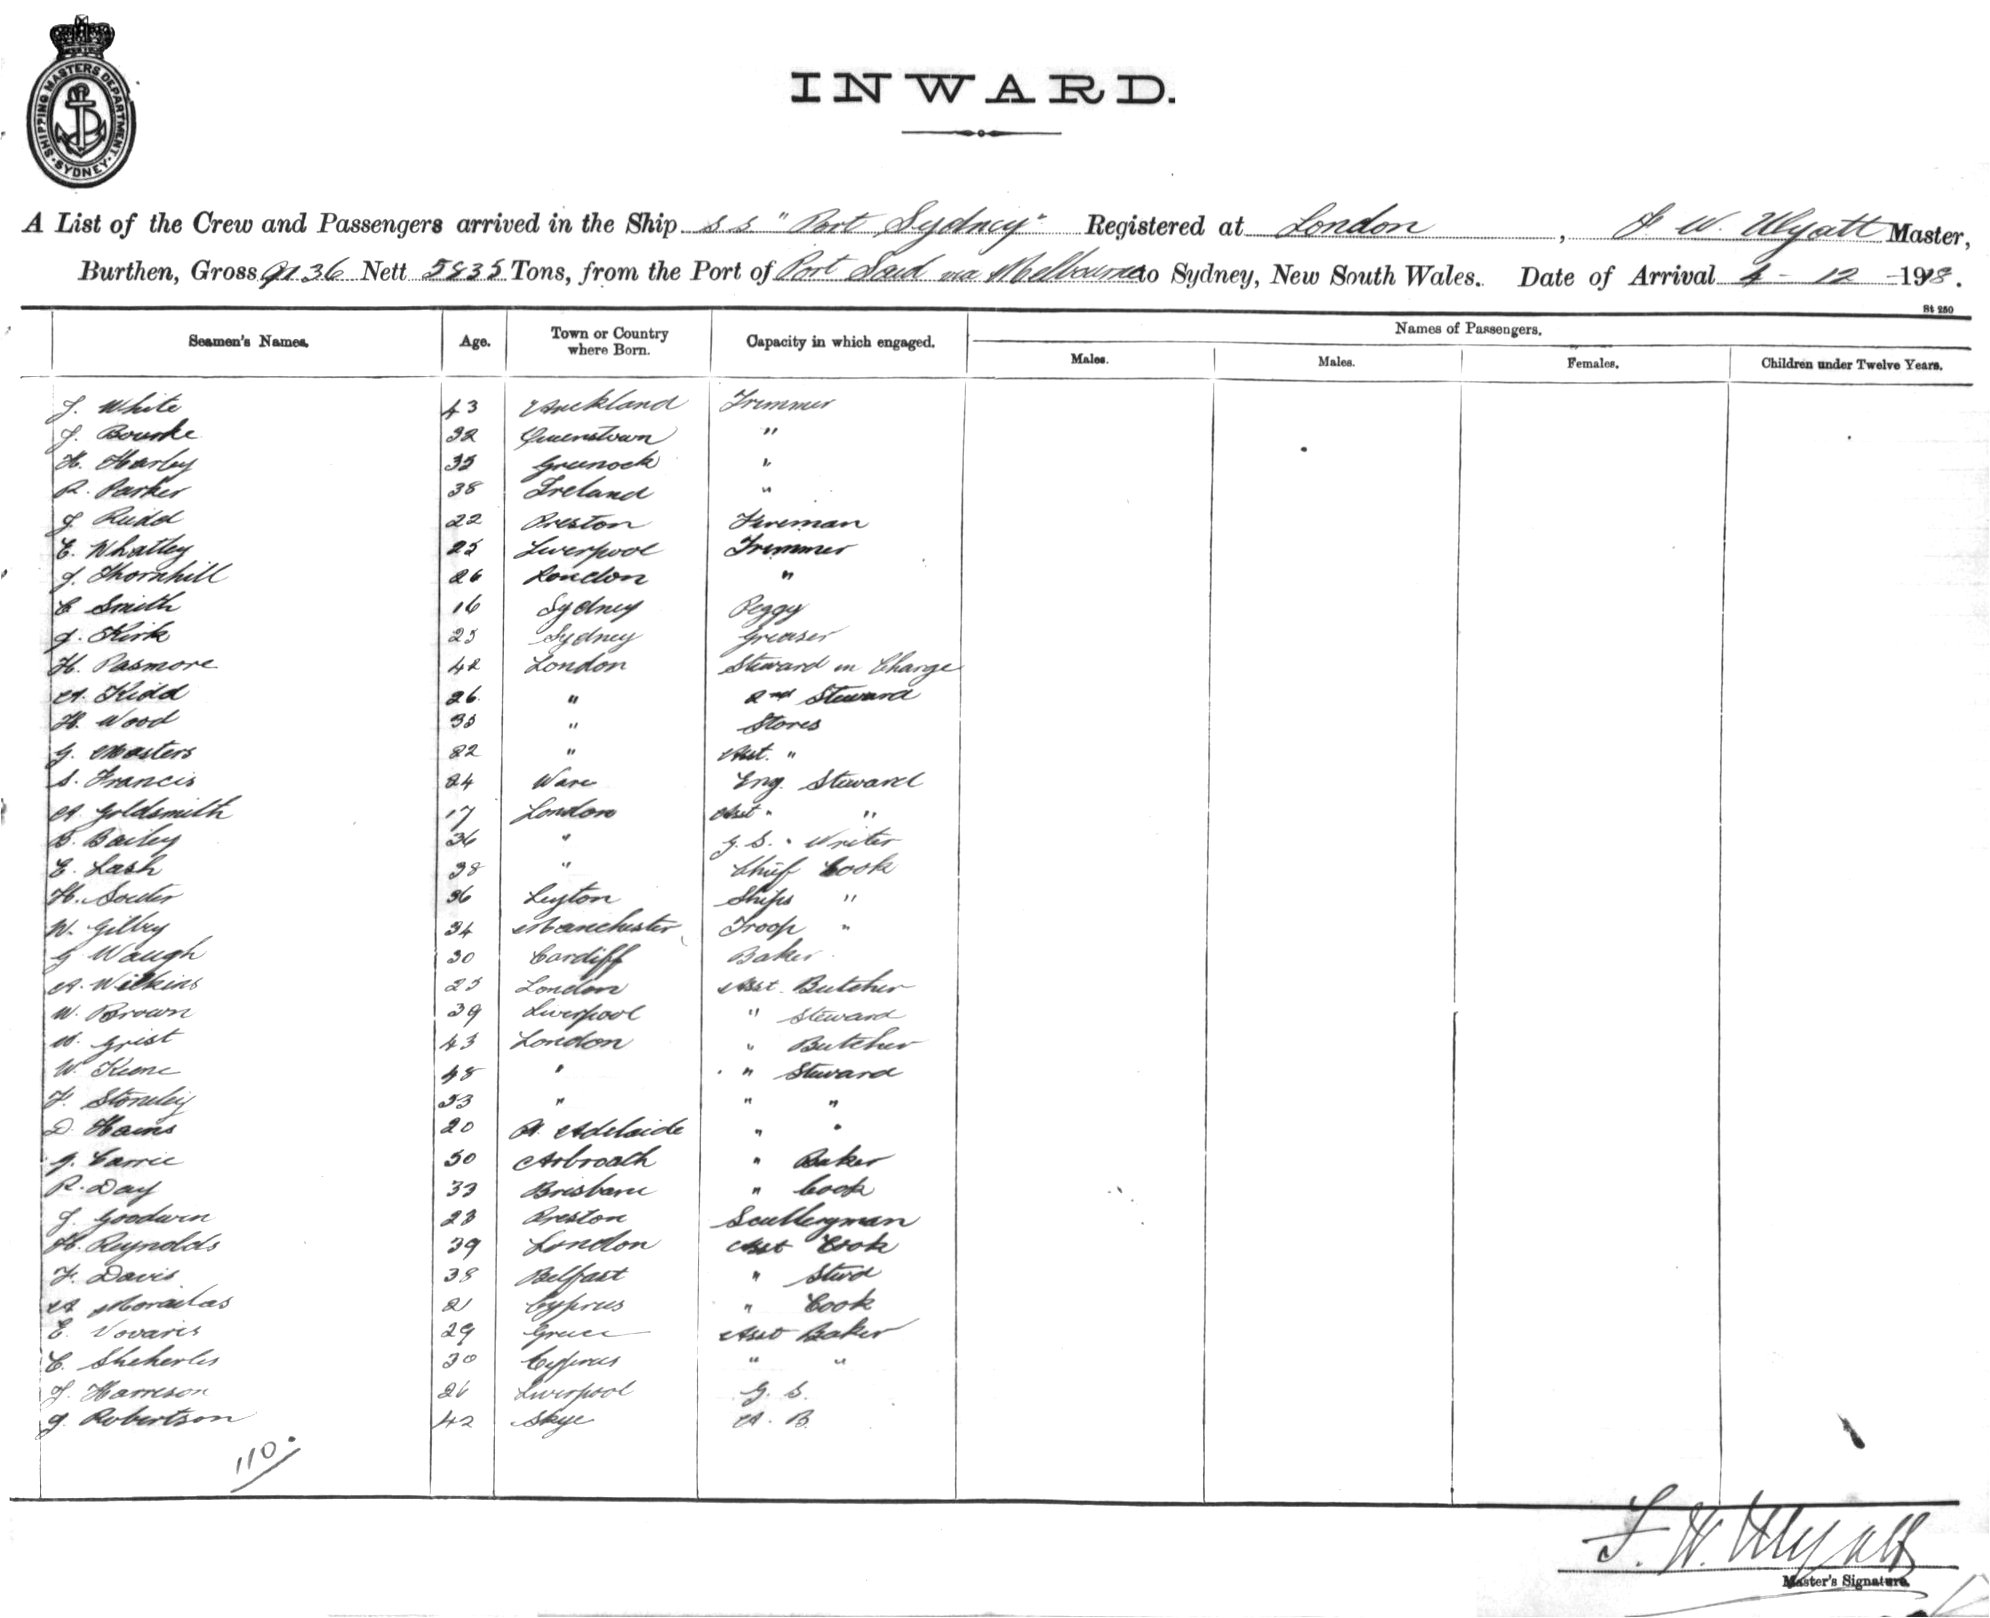 SHIPPING MASTERS DEPARTMENT · SYDNEY ·
INWARD.
A List of the Crew and Passengers arrived in the Ship S.S. "Port Sydney" Registered at London, F W. Wyatt Master,
Burthen, Gross 9136 Nett 5835 Tons, from the Port of Port Said via Melbourne to Sydney, New South Wales. Date of Arrival 4 - 12 - 1918.
St 250
Seamen's Names. Age. Town or Country where Born. Capacity in which engaged. Names of Passengers.
Males. Males. Females. Children under Twelve Years.
J. White 43 Auckland Trimmer
J. Bourke 32 Queenstown "
H. Harley 35 Greenock "
R. Parker 38 Ireland "
J. Rudd 22 Preston Fireman
E. Whatley 25 Liverpool Trimmer
J. Thornhill 26 London "
C Smith 16 Sydney Peggy
J. Kirk 25 Sydney Greaser
H. Pasmore 42 London Steward in Charge
A. Kidd 26 " 2nd Steward
H. Wood 35 " Stores
G. Masters 22 " Asst. "
S. Francis 24 Ware Eng. Steward
A. Goldsmith 17 London Asst " "
B. Bailey 36 " G. S. " Writer
E. Lash 38 " Chief Cook
H. Souter 36 Leyton Ships "
W. Gilbey 34 Manchester Troop "
G Waugh 30 Cardiff Baker
A. Wilkins 25 London Asst. Butcher
W. Brown 39 Liverpool " Steward
W. Grist 43 London " Butcher
W. Keene 48 " " Steward
F. Stoneley 53 " " "
D. Hains 20 Pt. Adelaide " "
J. Carrie 50 Arbroath " Baker
R. Day 33 Brisbane " Cook
J. Goodwin 23 Preston Sculleryman
H. Reynolds 39 London Asst Cook
F. Davis 38 Belfast " Stwd
A 21 Cyprus " Cook
E. Vovaris 29 Greece Asst Baker
C. 30 Cyprus " "
J. Harrison 26 Liverpool G. S.
G. Robertson 42 Skye A. B.
110.
F. W. Wyatt
Master's Signature.